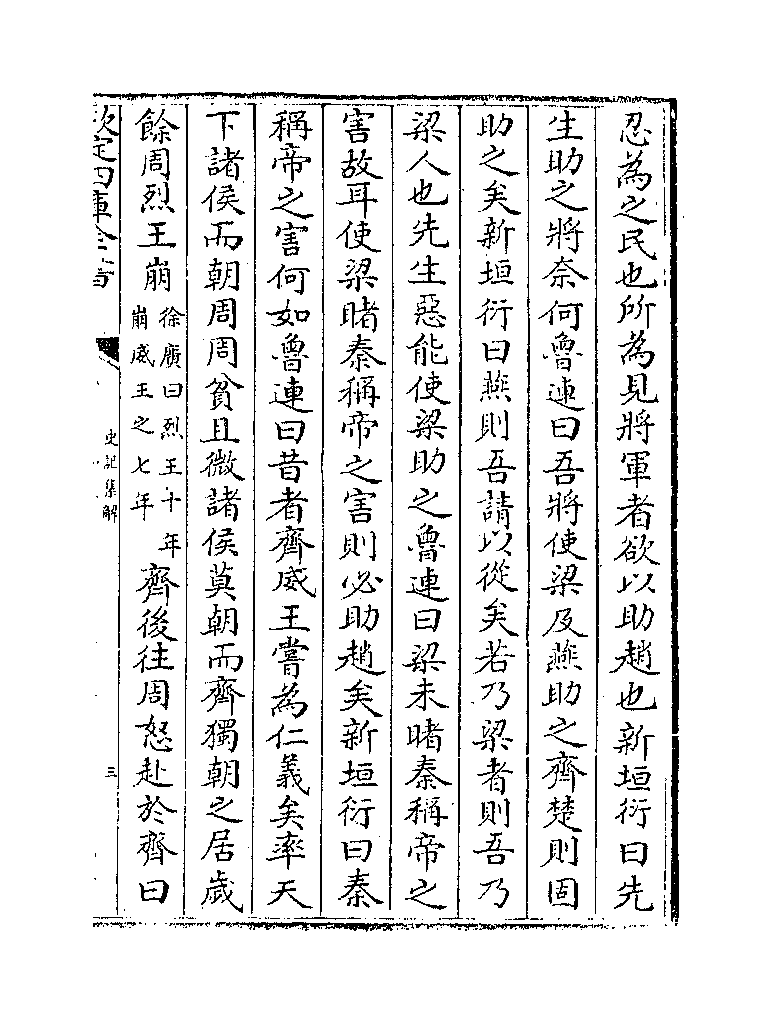 忍為之民也所為見將軍者欲以助趙也新垣衍曰先
生助之將奈何魯連曰吾將使梁及燕助之齊楚則固
助之矣新垣衍曰燕則吾請以從矣若乃梁者則吾乃
梁人也先生惡能使梁助之魯連曰梁未睹秦稱帝之
害故耳使梁睹秦稱帝之害則必助趙矣新垣衍曰秦
稱帝之害何如魯連曰昔者齊威王嘗為仁義矣率天
下諸侯而朝周周貧且微諸侯莫朝而齊獨朝之居歲
餘周烈王崩徐廣曰烈王十年崩威王之七年齊後往周怒赴於齊曰
欽定四庫全書
史記集解
三